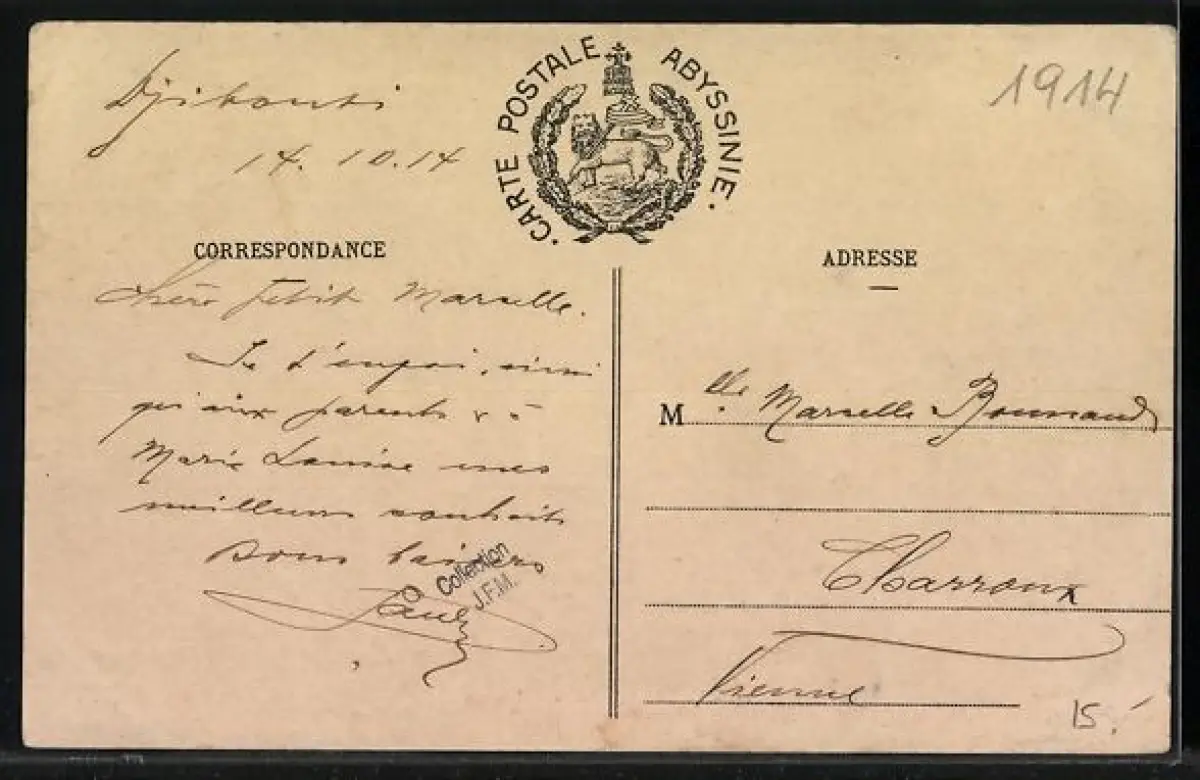 Djibouti
14.10.14
1914
CARTE POSTALE ABYSSINIE.
CORRESPONDANCE
ADRESSE
petite Marselle.
Je t'envoi, ainsi
qu'aux parents & à
Marie Louise mes
meilleurs souhaits
Bons baisers
Paul
Collection
J.F.M.
Mlle Marselle Bonnaud
Charroux
Vienne
15.